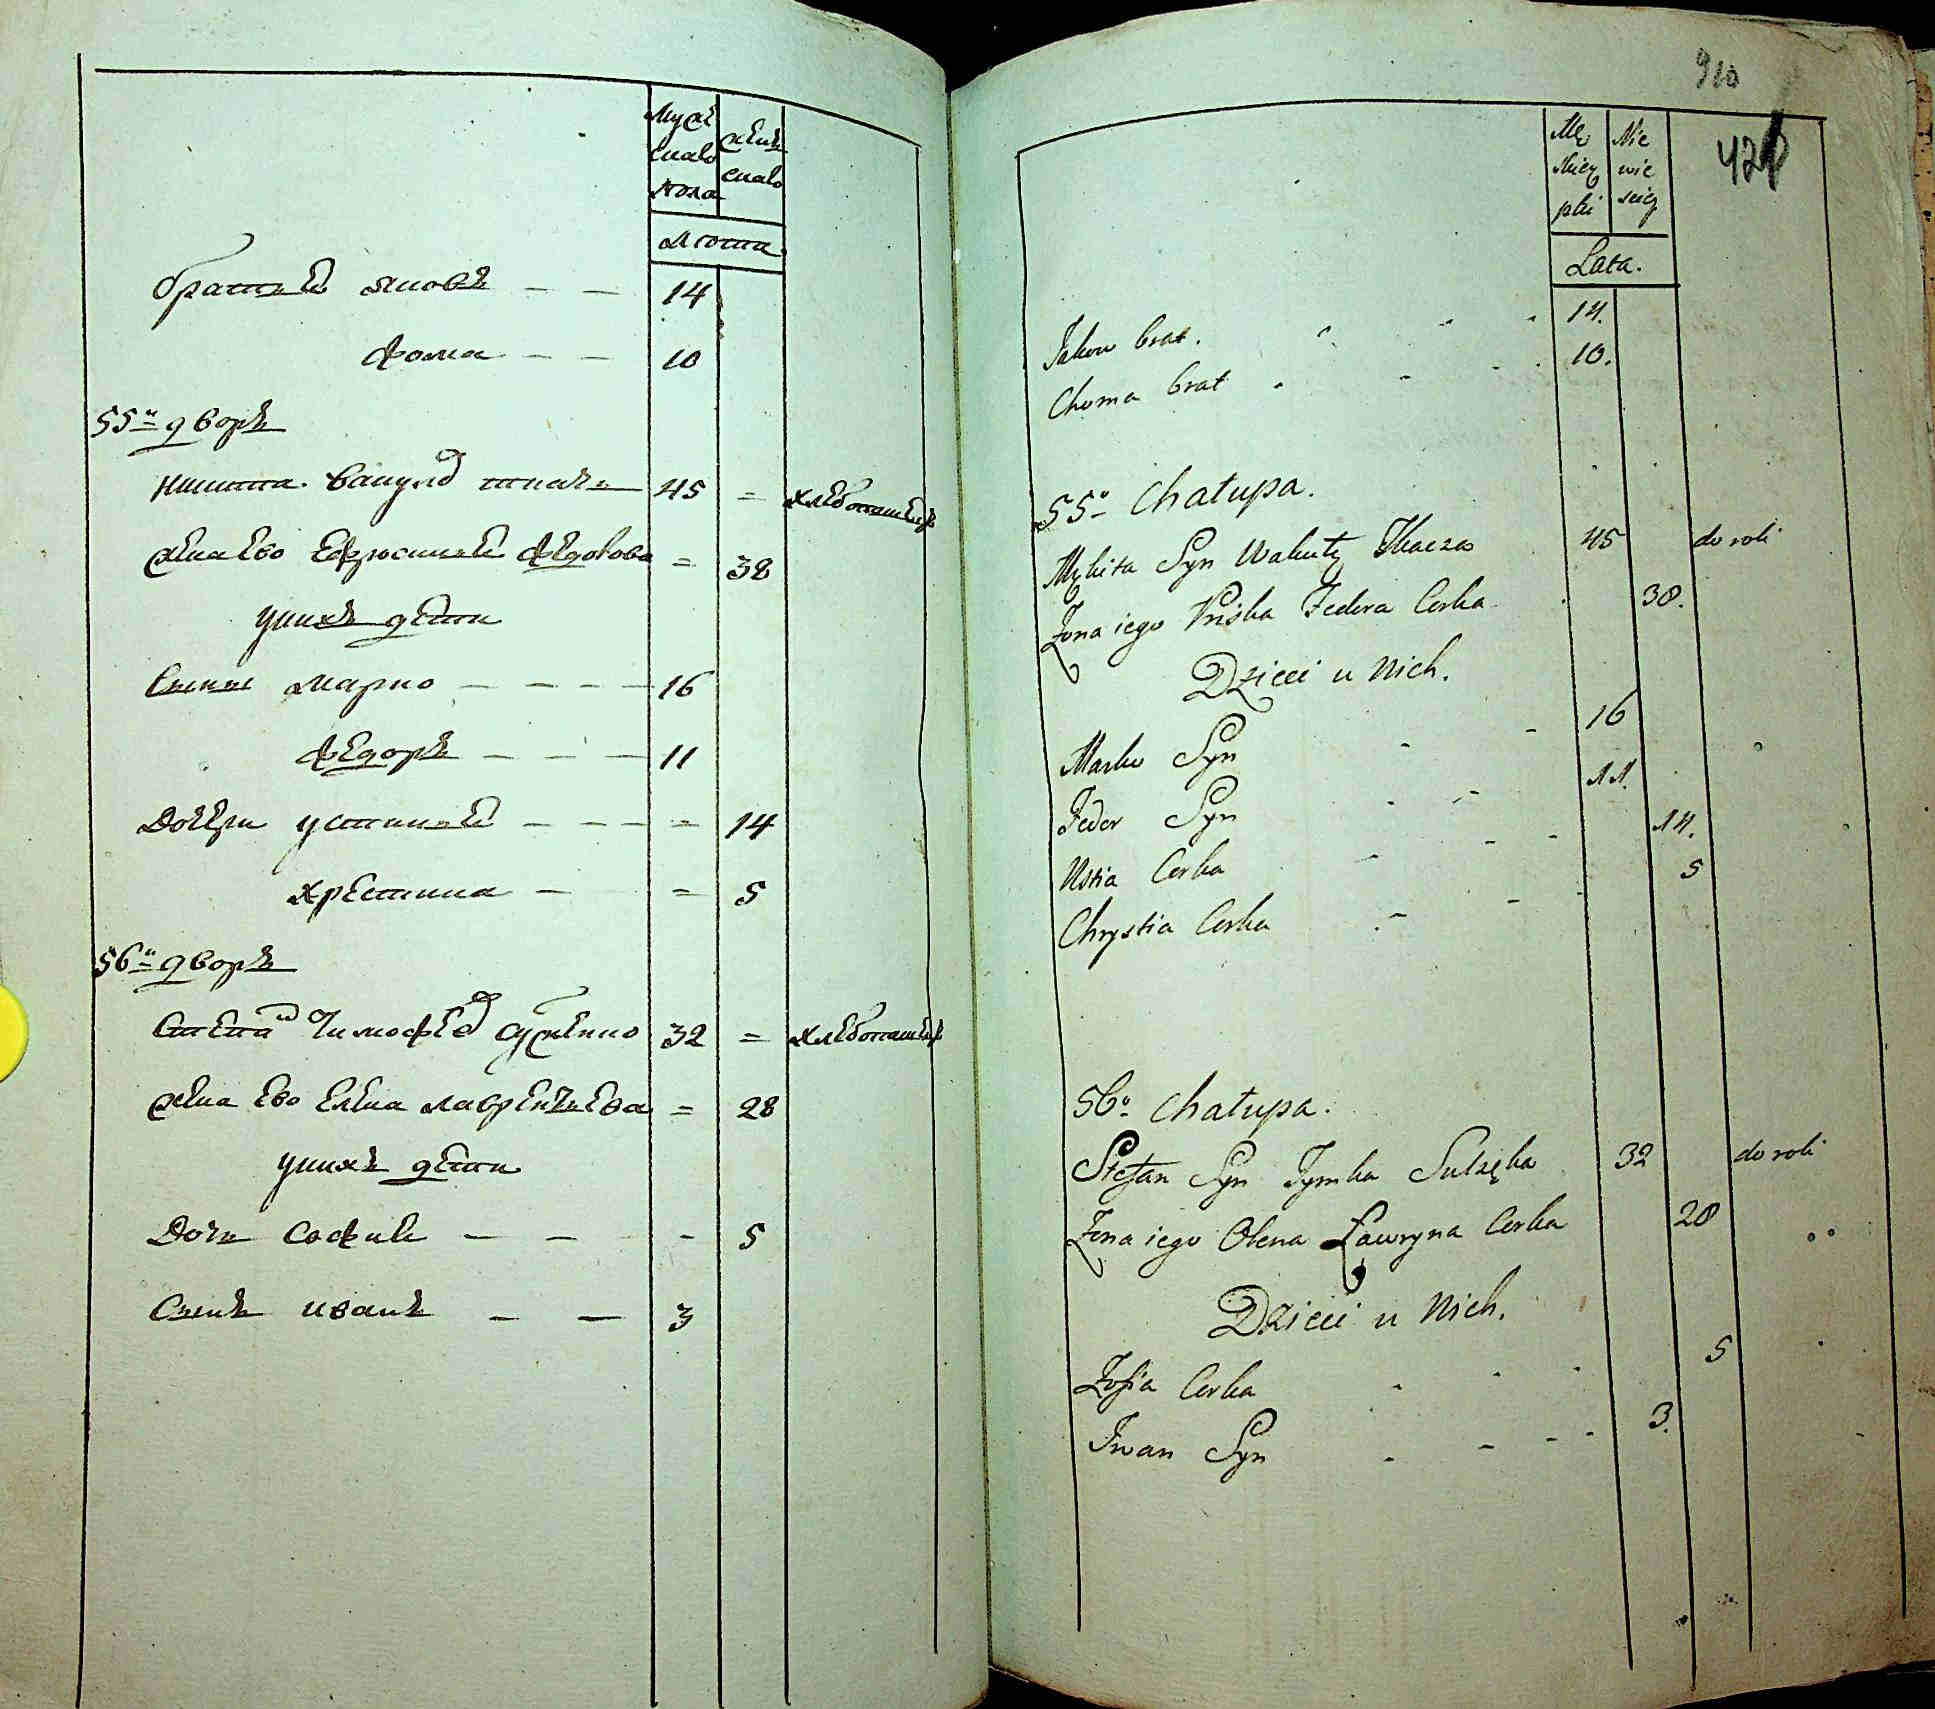 Мужеска пола
женска
Лета
братья яковъ — — 14
фома — — 10
55й дворъ
никита ткачъ 45 = хлебопашецъ
жена ево Ефросинья федорова = 38
у нихъ дети
Сыны марко — — — — 16
федоръ — — — 11
Дочери устинья — — — = 14
христина — = 5
56й дворъ
Степанъ Тимофеевъ 32 = хлебопашецъ
жена ево Елена лаврентьева = 28
у нихъ дети
Дочь Софья — — — - 5
Сынъ иванъ — — 3
910
Mę Nie
wie
ski scię
Lata.
Jakow brat. 14.
Choma brat 10.
55o Chałupa.
Mykita Syn Wakuły Tkacza 45 do roli
Żona iego Priska Fedora Corka 38.
Dzieci u Nich.
Marko Syn 16
Fedor Syn 11.
Ustia Corka 14.
Chrystia Corka 5
56o Chałupa.
Stefan Syn Tymka 32 do roli
Żona iego Olena Ławryna Corka 28
Dzieci u Nich.
Zofia Corka 5
Iwan Syn 3.